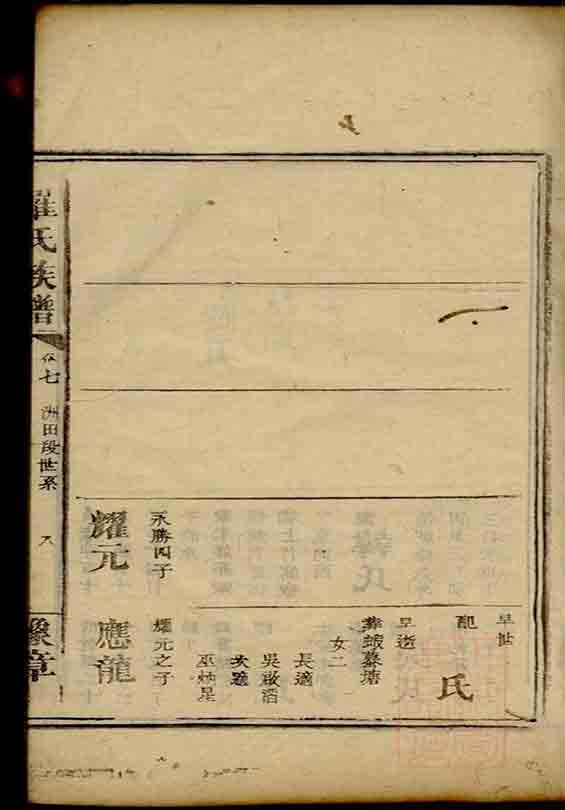 早世
配
氏
早逝
葬蝦蟇塘
女二
長適
吳啟滔
次適
巫炳星
永勝四子
耀元之子
耀元
應龍
羅氏族譜
卷七
洲田段世系
八
豫章